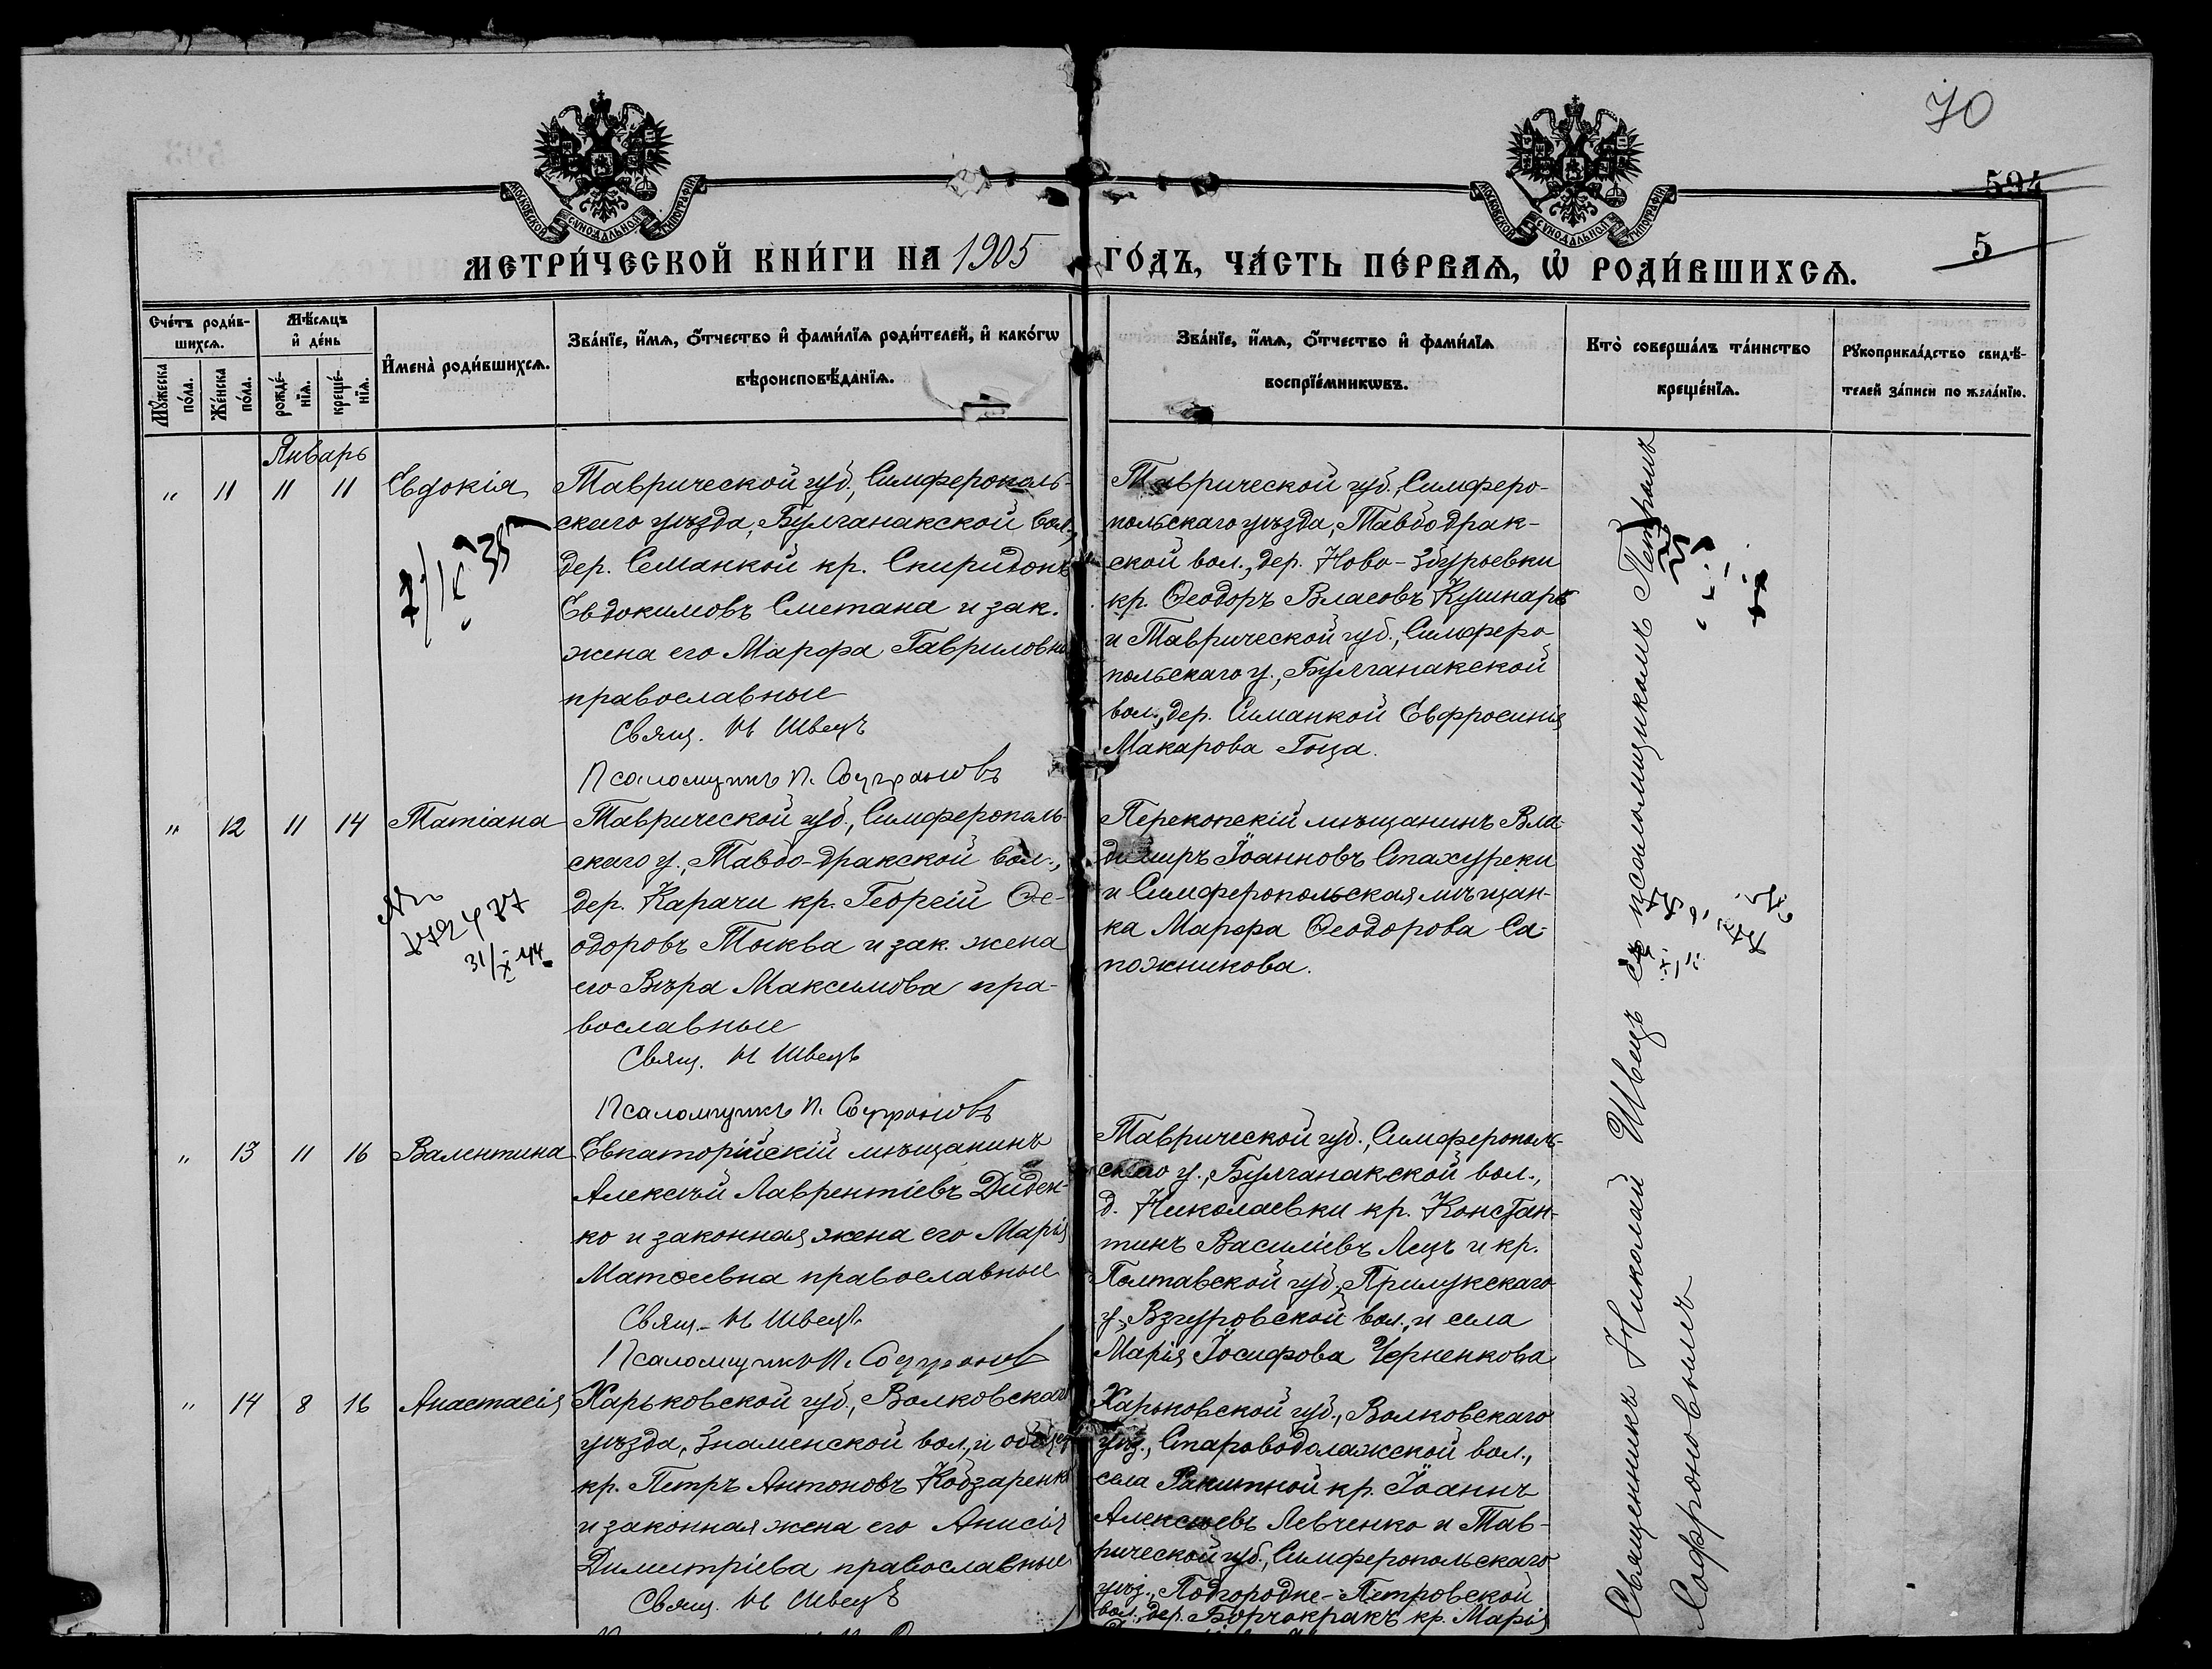 70
594
5
МОСКОВСКОЙ СѴНОДАЛЬНОЙ ТИПОГРАФІИ
МОСКОВСКОЙ СѴНОДАЛЬНОЙ ТИПОГРАФІИ
МЕТРИ́ЧЕСКОЙ КНИ́ГИ НА 1905 ГО́ДЪ, ЧА́СТЬ ПЕ́РВАѦ, Ѡ҆ РОДИ́ВШИХСѦ.
Сче́тъ роди́в-
шихсѧ.
Мꙋ́жеска по́ла.
Же́нска по́ла.
Мѣ́сѧцъ
и҆ де́нь
рожде́-
нїѧ.
креще́-
нїѧ.
И҆мена̀ роди́вшихсѧ.
Зва́нїе, и҆́мѧ, ѻ҆́тчество и҆ фами́лїѧ роди́телей, и҆ како́гѡ
вѣроисповѣ́данїѧ.
Зва́нїе, и҆́мѧ, ѻ҆́тчество и҆ фами́лїѧ
воспрїе́мникѡвъ.
Кто̀ соверша́лъ та́инство
креще́нїѧ.
Рꙋкоприкла́дство свидѣ́-
телей за́писи по жела́нїю.
Январь
" 11 11 11 Евдокія
Таврической губ., Симферополь-
скаго уѣзда, Булганакской вол.,
дер. Семанкой кр. Спиридонъ
Евдокимовъ Сметана и зак.
жена его Марфа Гавриловна
православные
Свящ. Н Швецъ
Псаломщикъ П. Софроновъ
Таврической губ., Симферо-
польскаго уѣзда, Тавбодрак-
ской вол., дер. Ново-Збурьевки
кр. Ѳеодоръ Власовъ Кушнарь
и Таврической губ., Симферо
польскаго у., Булганакской
вол., дер. Симанкой Евфросинія
Макарова Гоца.
" 12 11 14 Татіана
31/X 44
Таврической губ., Симферополь-
скаго у., Тавбо-дракской вол.,
дер. Карачи кр. Георгій Ѳе-
одоровъ Тыква и зак. жена
его Вѣра Максимова пра-
вославные
Свящ. Н Швецъ
Псаломщикъ П. Софроновъ
Перекопскій мѣщанинъ Вла-
димиръ Іоанновъ Стахурски
и Симферопольская мѣщан-
ка Марфа Ѳеодорова Са-
пожникова.
" 13 11 16 Валентина
Евпаторійскій мѣщанинъ
Алексѣй Лаврентіевъ Диден-
ко и законная жена его Марія
Матѳеевна православные
Свящ. Н Швецъ
Псаломщикъ П. Софронов
Таврической губ., Симферополь-
скаго у., Булганакской вол.,
д. Николаевки кр. Констан-
тинъ Василіевъ Лецъ и кр.
Полтавской губ., Прилукскаго
у., Взгуровской вол., и села
Марія Іосифова Черненкова
" 14 8 16 Анастасія
Харьковской губ., Волковскаго
уѣзда, Знаменской вол., и общес.
кр. Петръ Антоновъ Кобзаренко
и законная жена его Анисія
Димитріева православные
Свящ. Н Швецъ
Харьковской губ., Волковскаго
уѣз., Староводолажской вол.,
села Ракитной кр. Іоаннъ
Алексѣевъ Левченко и Тав-
рической губ., Симферопольскаго
уѣз., Подгородне-Петровской
вол., дер. Борчокракъ кр. Марія
Священникъ Николай Швецъ съ псаломщикомъ Петромъ
Софроновымъ